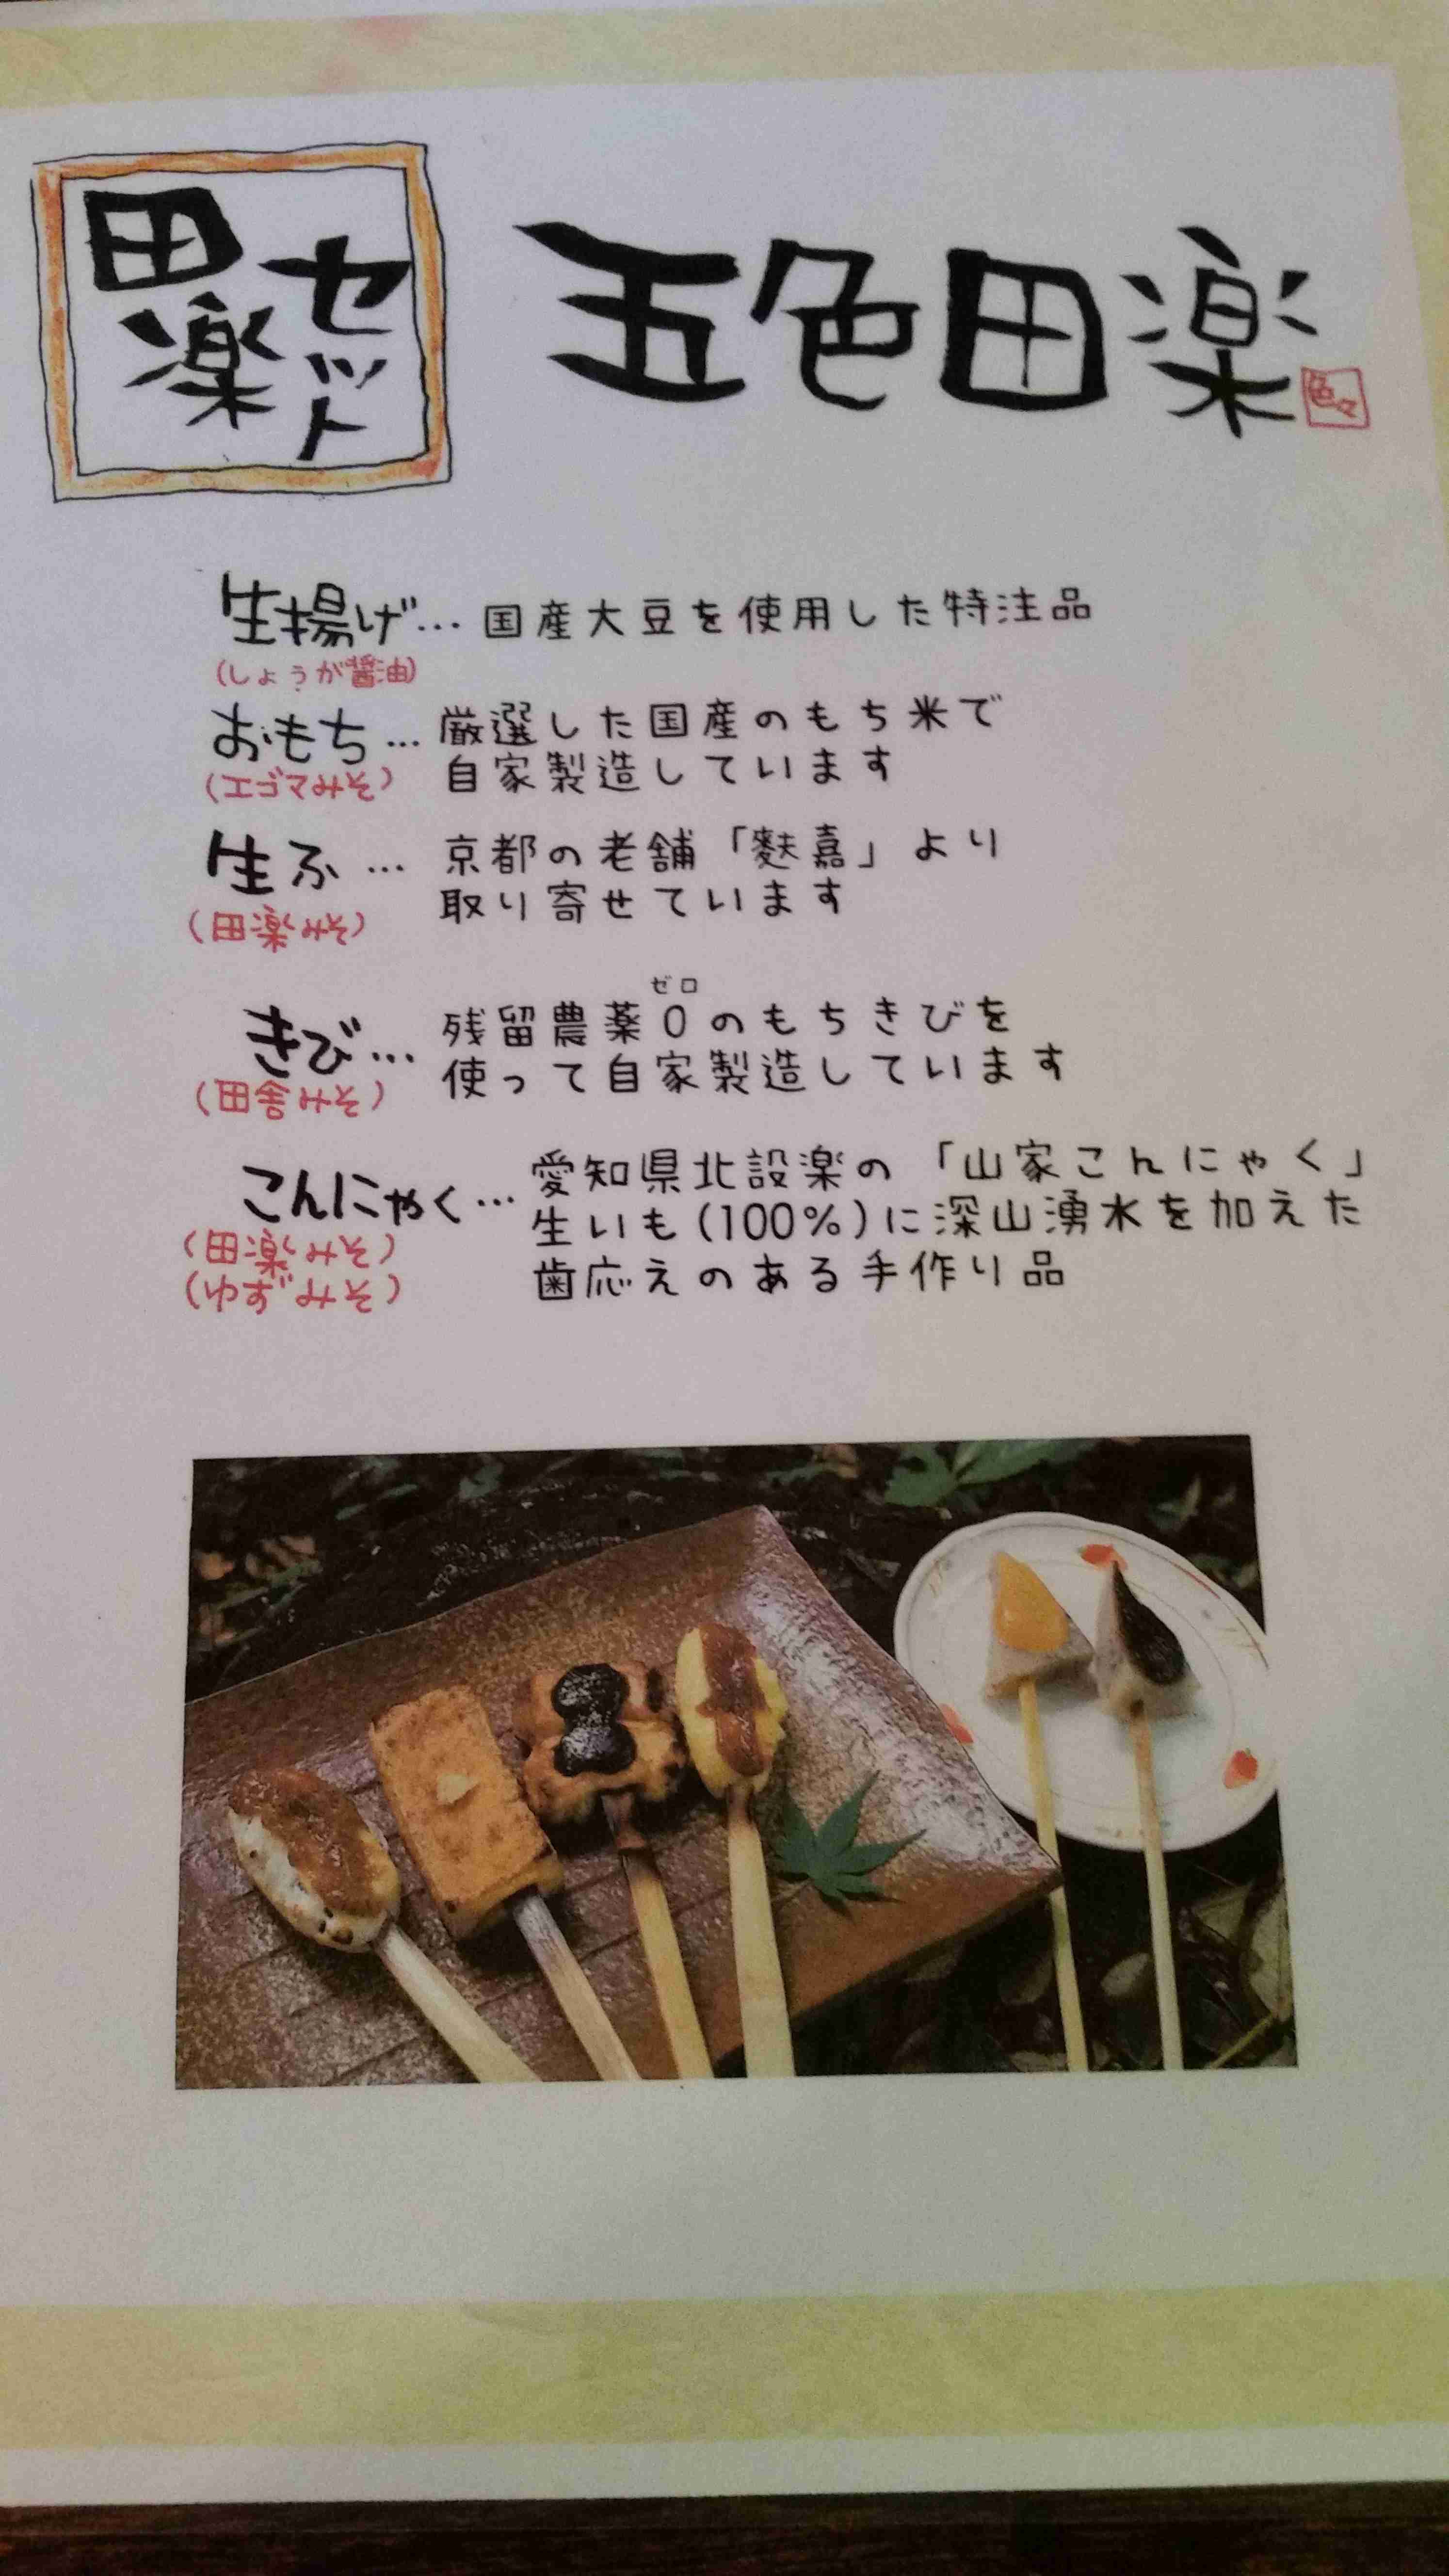 田楽
セット
五色田楽
色々
生揚げ…国産大豆を使用した特注品
(しょうが醤油)
おもち…厳選した国産のもち米で
(エゴマみそ) 自家製造しています
生ふ…京都の老舗「麩嘉」より
(田楽みそ) 取り寄せています
ゼロ
きび…残留農薬0のもちきびを
(田舎みそ) 使って自家製造しています
こんにゃく…愛知県北設楽の「山家こんにゃく」
(田楽みそ) 生いも(100%)に深山湧水を加えた
(ゆずみそ) 歯応えのある手作り品